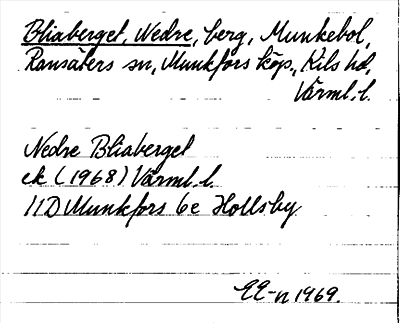 Bliaberget, Nedre, berg, Munkebol,
Ransäters sn, Munkfors köp., Kils hd,
Värml. l.
Nedre Bliaberget
ek (1968) Värml. l.
11D Munkfors 6e Hollsby
EE-n 1969.